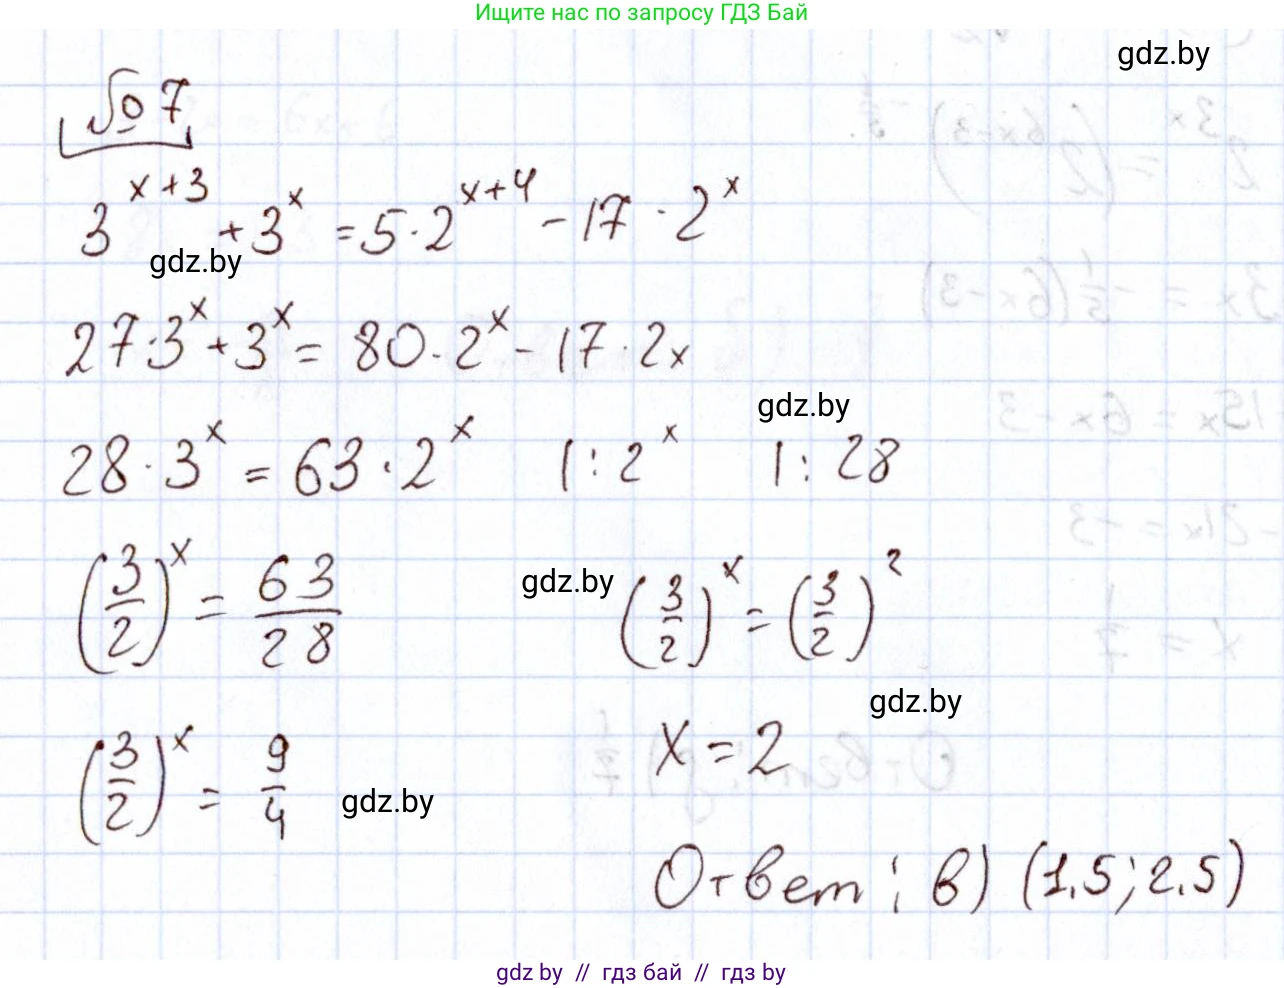 Ищите нас по запросу ГДЗ Бай
gdz.by
№ 7
3^{x+3} + 3^x = 5 · 2^{x+4} - 17 · 2^x
gdz.by
27·3^x + 3^x = 80 · 2^x - 17 · 2x
gdz.by
28 · 3^x = 63 · 2^x |: 2^x |: 28
(3/2)^x = 63/28
gdz.by
(3/2)^x = (3/2)^2
gdz.by
(3/2)^x = 9/4
gdz.by
x = 2
Ответ: в) (1,5; 2,5)
gdz.by // гдз бай // гдз by